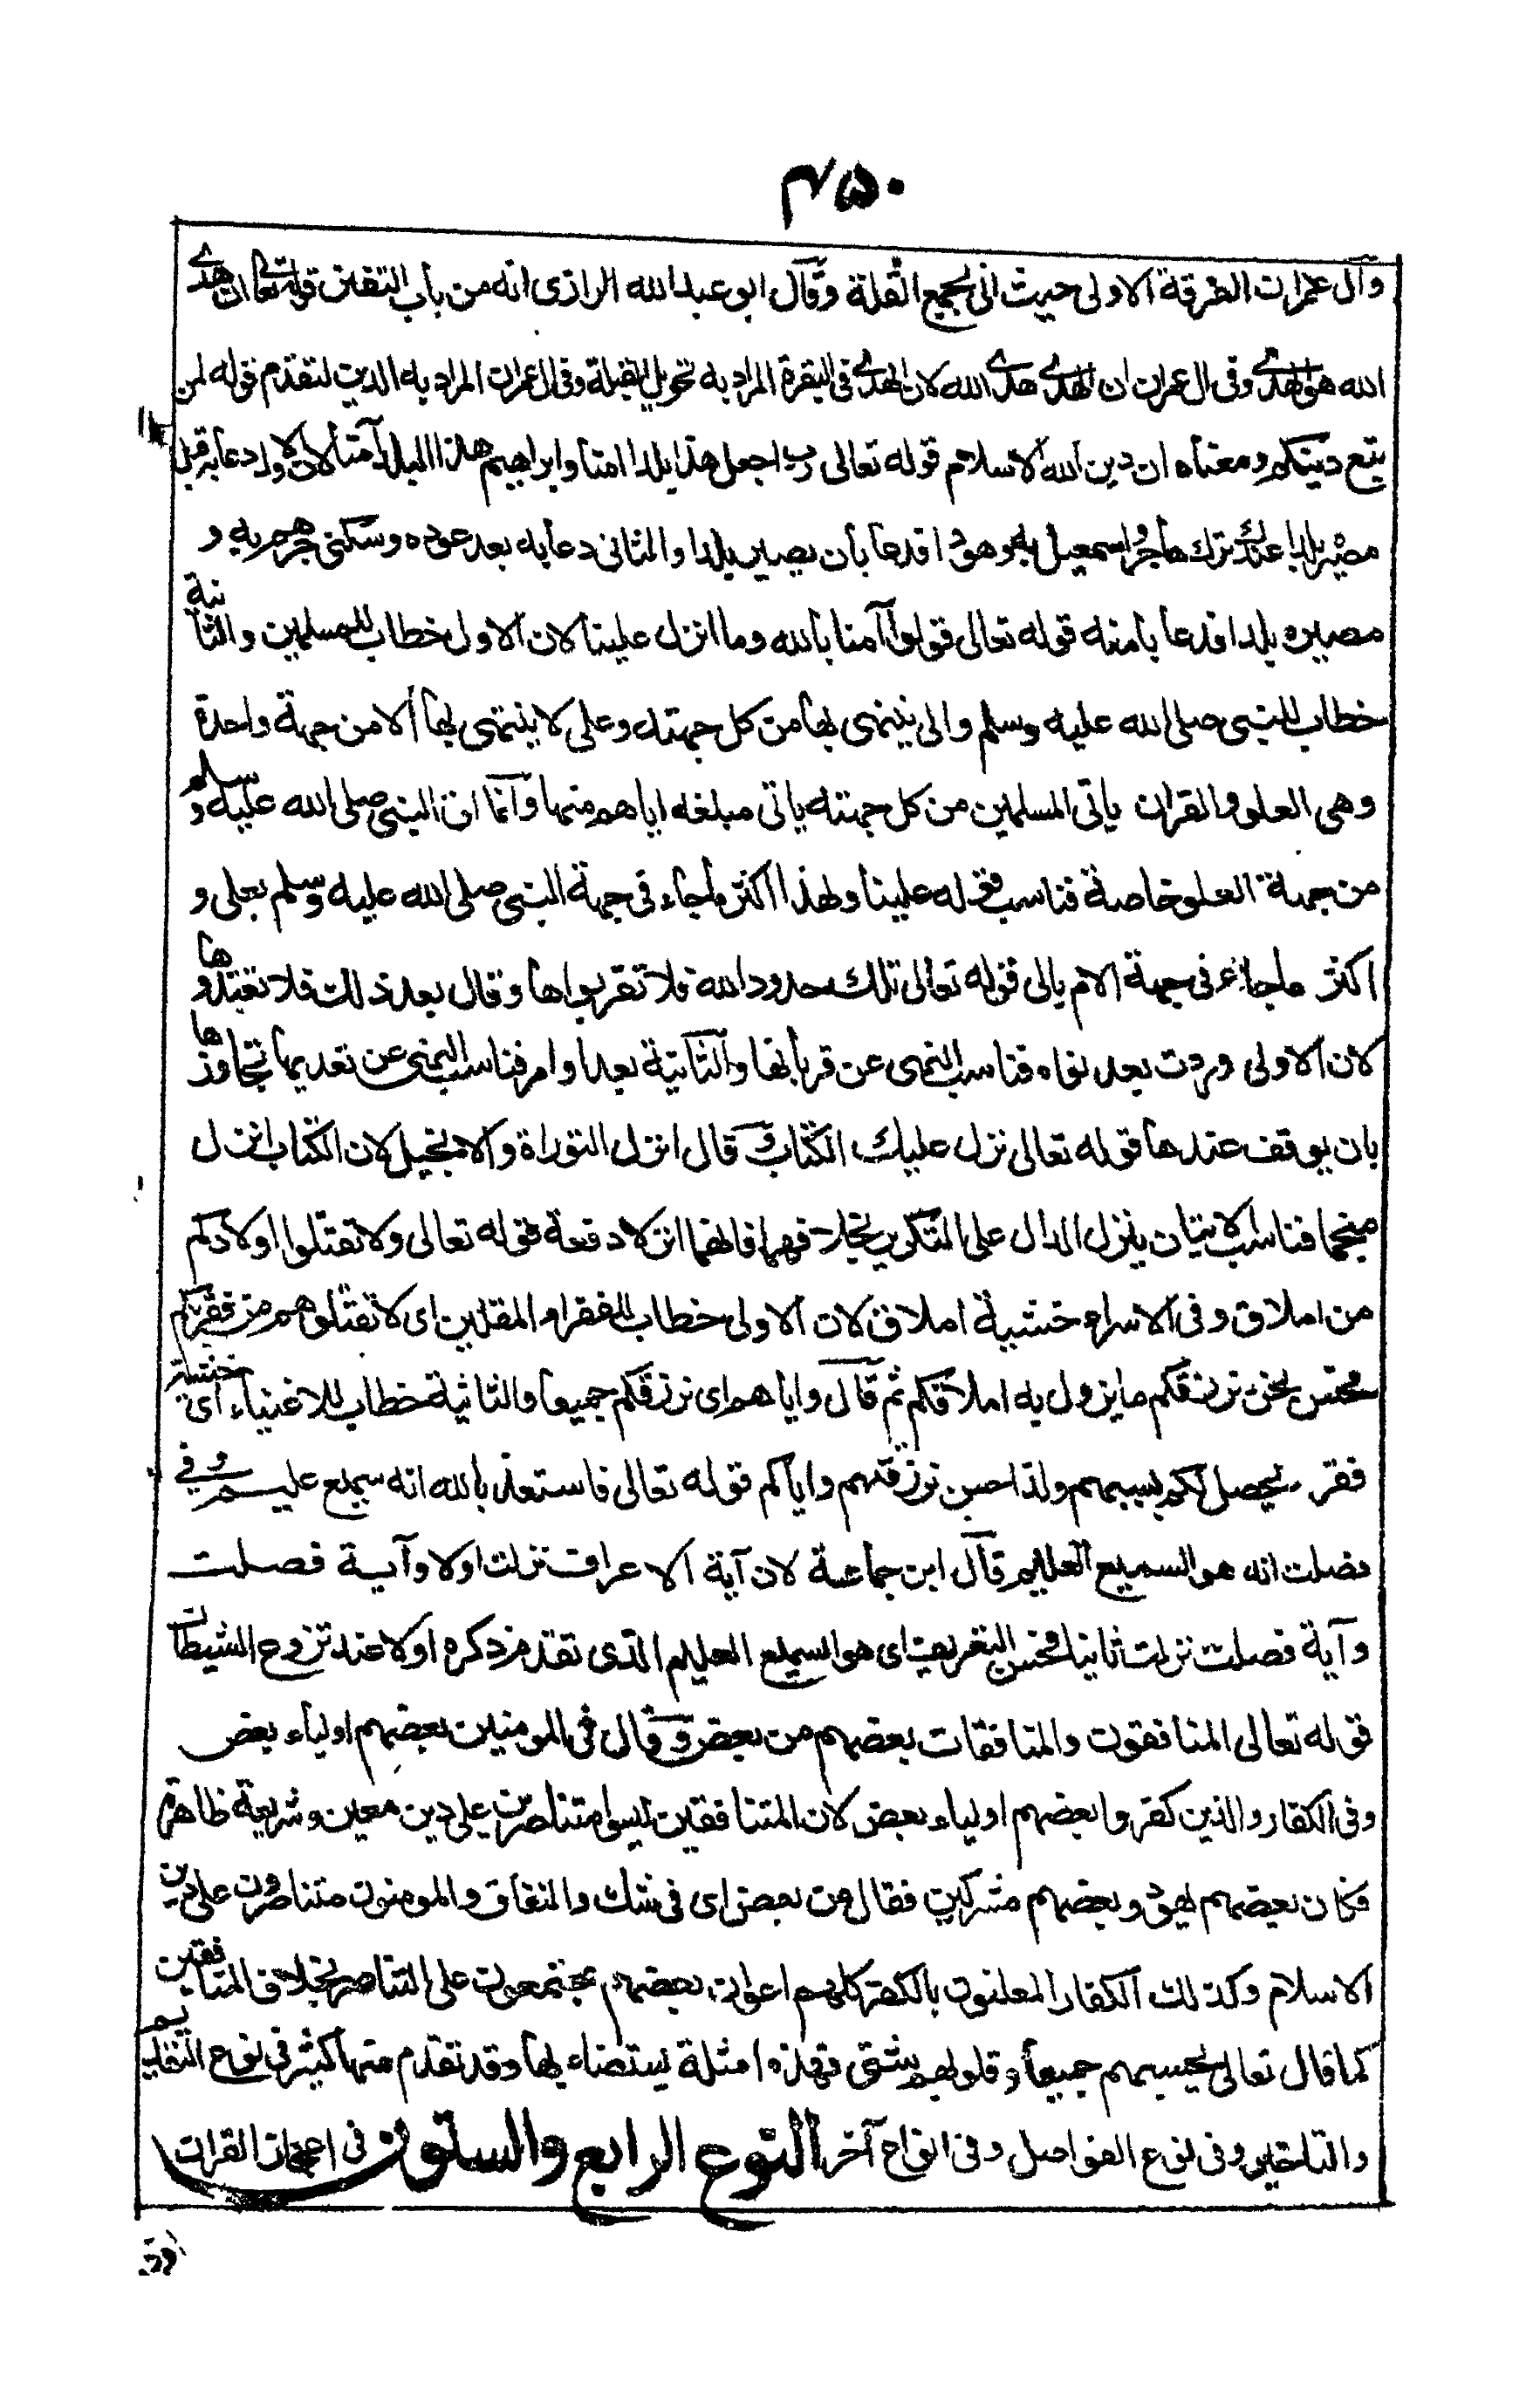 ۴۵۰
وآل عمران الفرقة الاولى حيث اتى بجمع القلة وقال ابو عبد الله الرازى انه من باب التفنن قوله تعالى ان هدى
الله هو الهدى وفى ال عمران ان الهدى هدى الله لان الهدى فى البقرة المراد به تحويل القبلة وفى ال عمران المراد به الدين لتقدم قوله لمن
يتبع دينكم ومعناه ان دين الله الاسلام قوله تعالى رب اجعل هذا بلدا امنا وابراهيم هذا البلد آمنا لان الاول دعا به قبل
مصيره بلدا عند ترك هاجر واسمعيل به وهو واد فدعا بان يصير بلدا والثانى دعا به بعد عوده وسكنى جرهم به و
مصيره بلدا فدعا بامنه قوله تعالى قولوا آمنا بالله وما انزل علينا لان الاول خطاب للمسلمين والثانية
خطاب للنبى صلى الله عليه وسلم والى ينتهى بها من كل جهته وعلى لا ينتهى بها الا من جهة واحدة
وهى العلو والقران ياتى المسلمين من كل جهته ياتى مبلغه اياهم منها وانما اتى النبى صلى الله عليه وسلم
من جهة العلو خاصة فناسب قوله علينا ولهذا اكثر ما جاء فى جهة النبى صلى الله عليه وسلم بعلى و
اكثر ما جاء فى جهة الامم بالى قوله تعالى تلك حدود الله فلا تقربوها وقال بعد ذلك فلا تعتدوها
لان الاولى وردت بعد نواه فناسب النهى عن قربانها والثانية بعد اوامر فناسب النهى عن تعديها تجاوزها
بان يوقف عندها قوله تعالى نزل عليك الكتاب وقال انزل التوراة والانجيل لان الكتاب انزل
منجما فناسب الاتيان بنزل الدال على التكرير بخلافهما فانهما انزلا دفعة قوله تعالى ولا تقتلوا اولادكم
من املاق وفى الاسراء خشية املاق لان الاولى خطاب للفقراء المقلين اى لا تقتلوهم من فقر بكم
فحسن نحن نرزقكم ما يزول به املاقكم ثم قال واياهم اى نرزقكم جميعا والثانية خطاب للاغنياء اى خشية
فقر يحصل لكم بسببهم ولذا حسن نرزقهم واياكم قوله تعالى فاستعذ بالله انه سميع عليم وفى
فصلت انه هو السميع العليم قال ابن جماعة لان آية الاعراف نزلت اولا وآية فصلت
وآية فصلت نزلت ثانيا فحسن التعريف اى هو السميع العليم الذى تقدم ذكره اولا عند نزوح الشيطان
قوله تعالى المنافقون والمنافقات بعضهم من بعض وقال فى المومنين بعضهم اولياء بعض
وفى الكفار والذين كفروا بعضهم اولياء بعض لان المنافقين ليسوا متناصرين على دين معين وشريعة ظاهرة
فكان بعضهم يهود وبعضهم مشركين فقال من بعض اى فى شك والنفاق والمومنون متناصرون على دين
الاسلام وكذلك الكفار المعلنون بالكفر كلهم اعوان بعضهم مجتمعون على التناصر بخلاف المنافقين
كما قال تعالى تحسبهم جميعا وقلوبهم شتى فهذه امثلة يستضاء بها وقد تقدم منها كثير فى نوع التقديم
والتاخير وفى نوع الفواصل وفى انواع آخر النوع الرابع والستون فى اعجاز القران